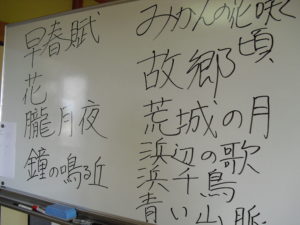 早春賦
花
朧月夜
鐘の鳴る丘
みかんの花咲く頃
故郷
荒城の月
浜辺の歌
浜千鳥
青い山脈